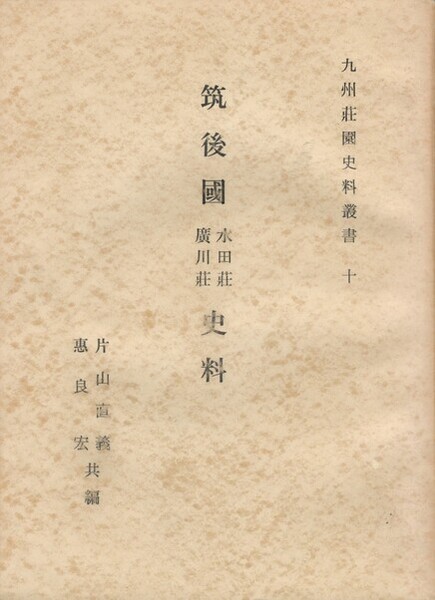 九州莊園史料叢書 十
筑後國水田莊廣川莊史料
片山直義
惠良宏
共編